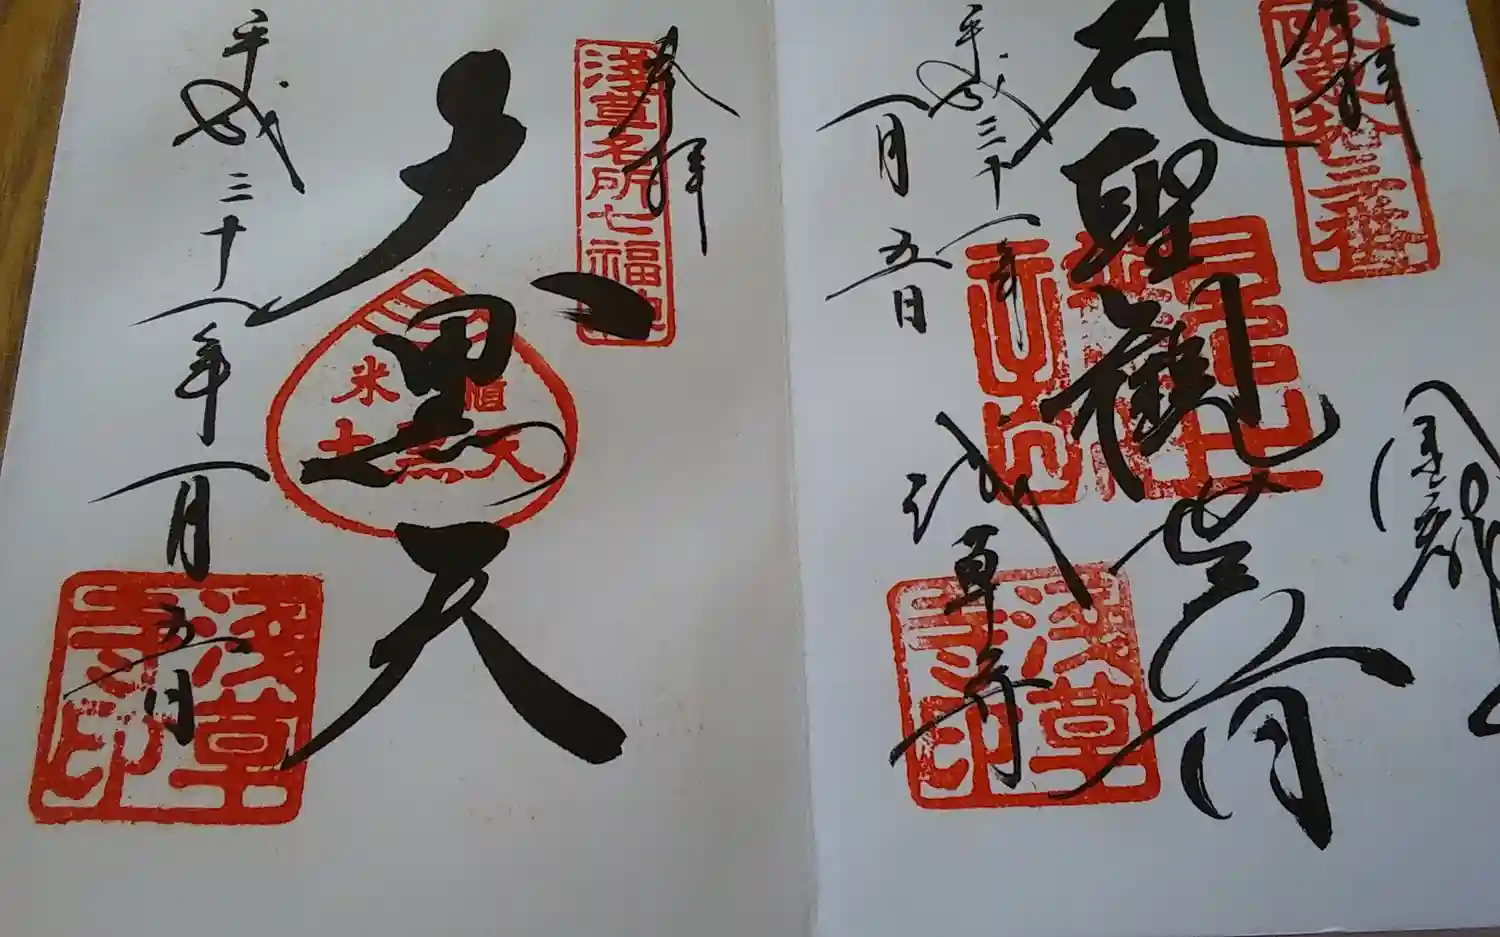 奉拝
坂東拾三番
聖観世音
浅草寺
平成三十一年
一月五日
浅草寺印
奉拝
浅草名所七福神
大黒天
米
大黒天
平成三十一年一月五日
浅草寺印